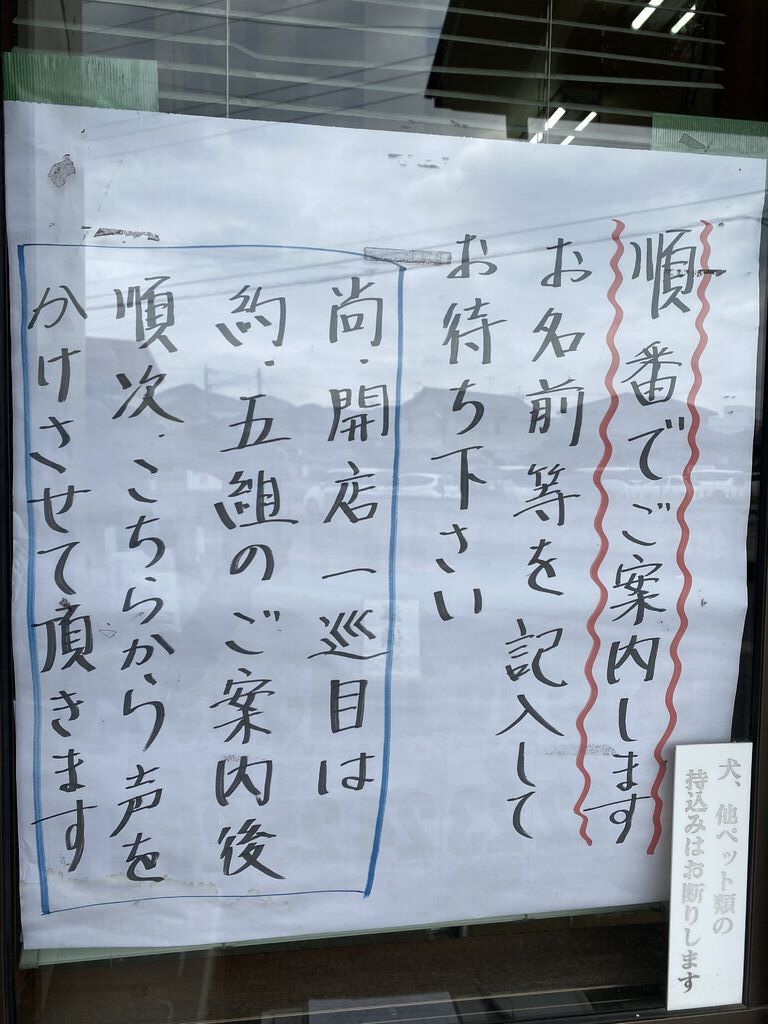 順番でご案内します
お名前等を記入して
お待ち下さい
尚、開店一巡目は
約、五組のご案内後
順次、こちらから声を
かけさせて頂きます
犬、他ペット類の
持込みはお断りします